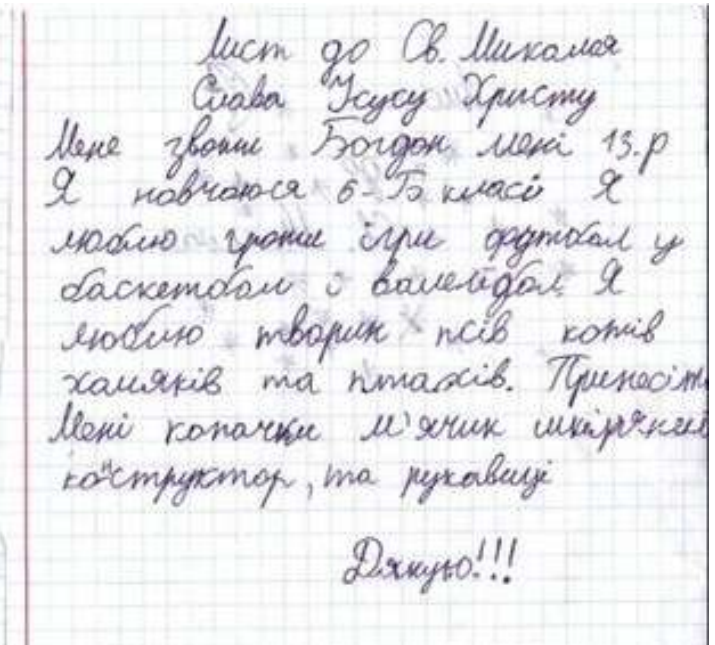 Лист до Св. Миколая
Слава Ісусу Христу
Мене звати Богдан мені 13.р
Я навчаюся 6-Б класі Я
люблю грати ігри футбол у
баскетбол і валейдбол Я
люблю тварин псів котів
хамяків та птахів. Принесіть
Мені копачки м'ячик шкіряний
конструктор, та рукавиці
Дякую!!!